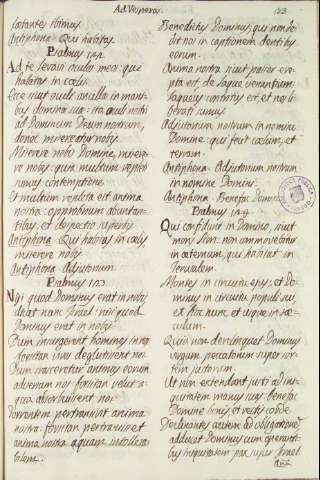 Ad Vesperas.
123
lætantes fuimus
Antiphona. Qui habitas.
Psalmus 122.
Ad te levavi oculos meos: qui
habitas in cœlis.
Ecce sicut oculi ancillæ in mani-
bus dominæ suæ: ita oculi nostri
ad Dominum Deum nostrum,
donec misereatur nobis.
Miserere nobis Domine, misere-
re nobis: quia multum repleti
sumus contemptione.
Et multum repleta est anima
nostra: opprobrium abundan-
tibus, et despectio superbis.
Antiphona. Qui habitas in cœlis
miserere nobis.
Antiphona. Adjutorium.
Psalmus 123.
Nisi quod Dominus erat in nobis
dicat nunc Israel: nisi quod
Dominus erat in nobis.
Dum insurgerent homines in nos
forsitan vivos deglutivent nos.
Dum irasceretur animus eorum
adversum nos forsitan velut a-
qua absorbuisset nos.
Torrentem pertransivit anima
nostra: forsitan pertransisset
anima nostra aquam intollera-
bilem.
Benedictus Dominus; qui non de-
dit nos in captionem dentibus
eorum.
Anima nostra sicut passer ere-
pta est de laqueo venantium.
Laqueus contritus est, et nos li-
berati sumus.
Adjutorium nostrum in nomine
Domini: qui fecit cœlum, et
terram.
Antiphona. Adjutorium nostrum
in nomine Domini.
Antiphona. Benefac Domine.
Psalmus 124.
Qui confidunt in Domino, sicut
mons Sion: non commovebitur
in æternum, qui habitat in
Jerusalem.
Montes in circuitu ejus; et Do-
minus in circuitu populi sui,
ex hoc nunc et usque in sæ-
culum.
Quia non derelinquet Dominus
virgam peccatorum super sor-
tem justorum.
Ut non extendant justi ad ini-
quitatem manus suas benefac
Domine bonis, et rectis corde.
Declinantes autem in obligationes
adducet Dominus cum operanti-
bus iniquitatem pax super Israel